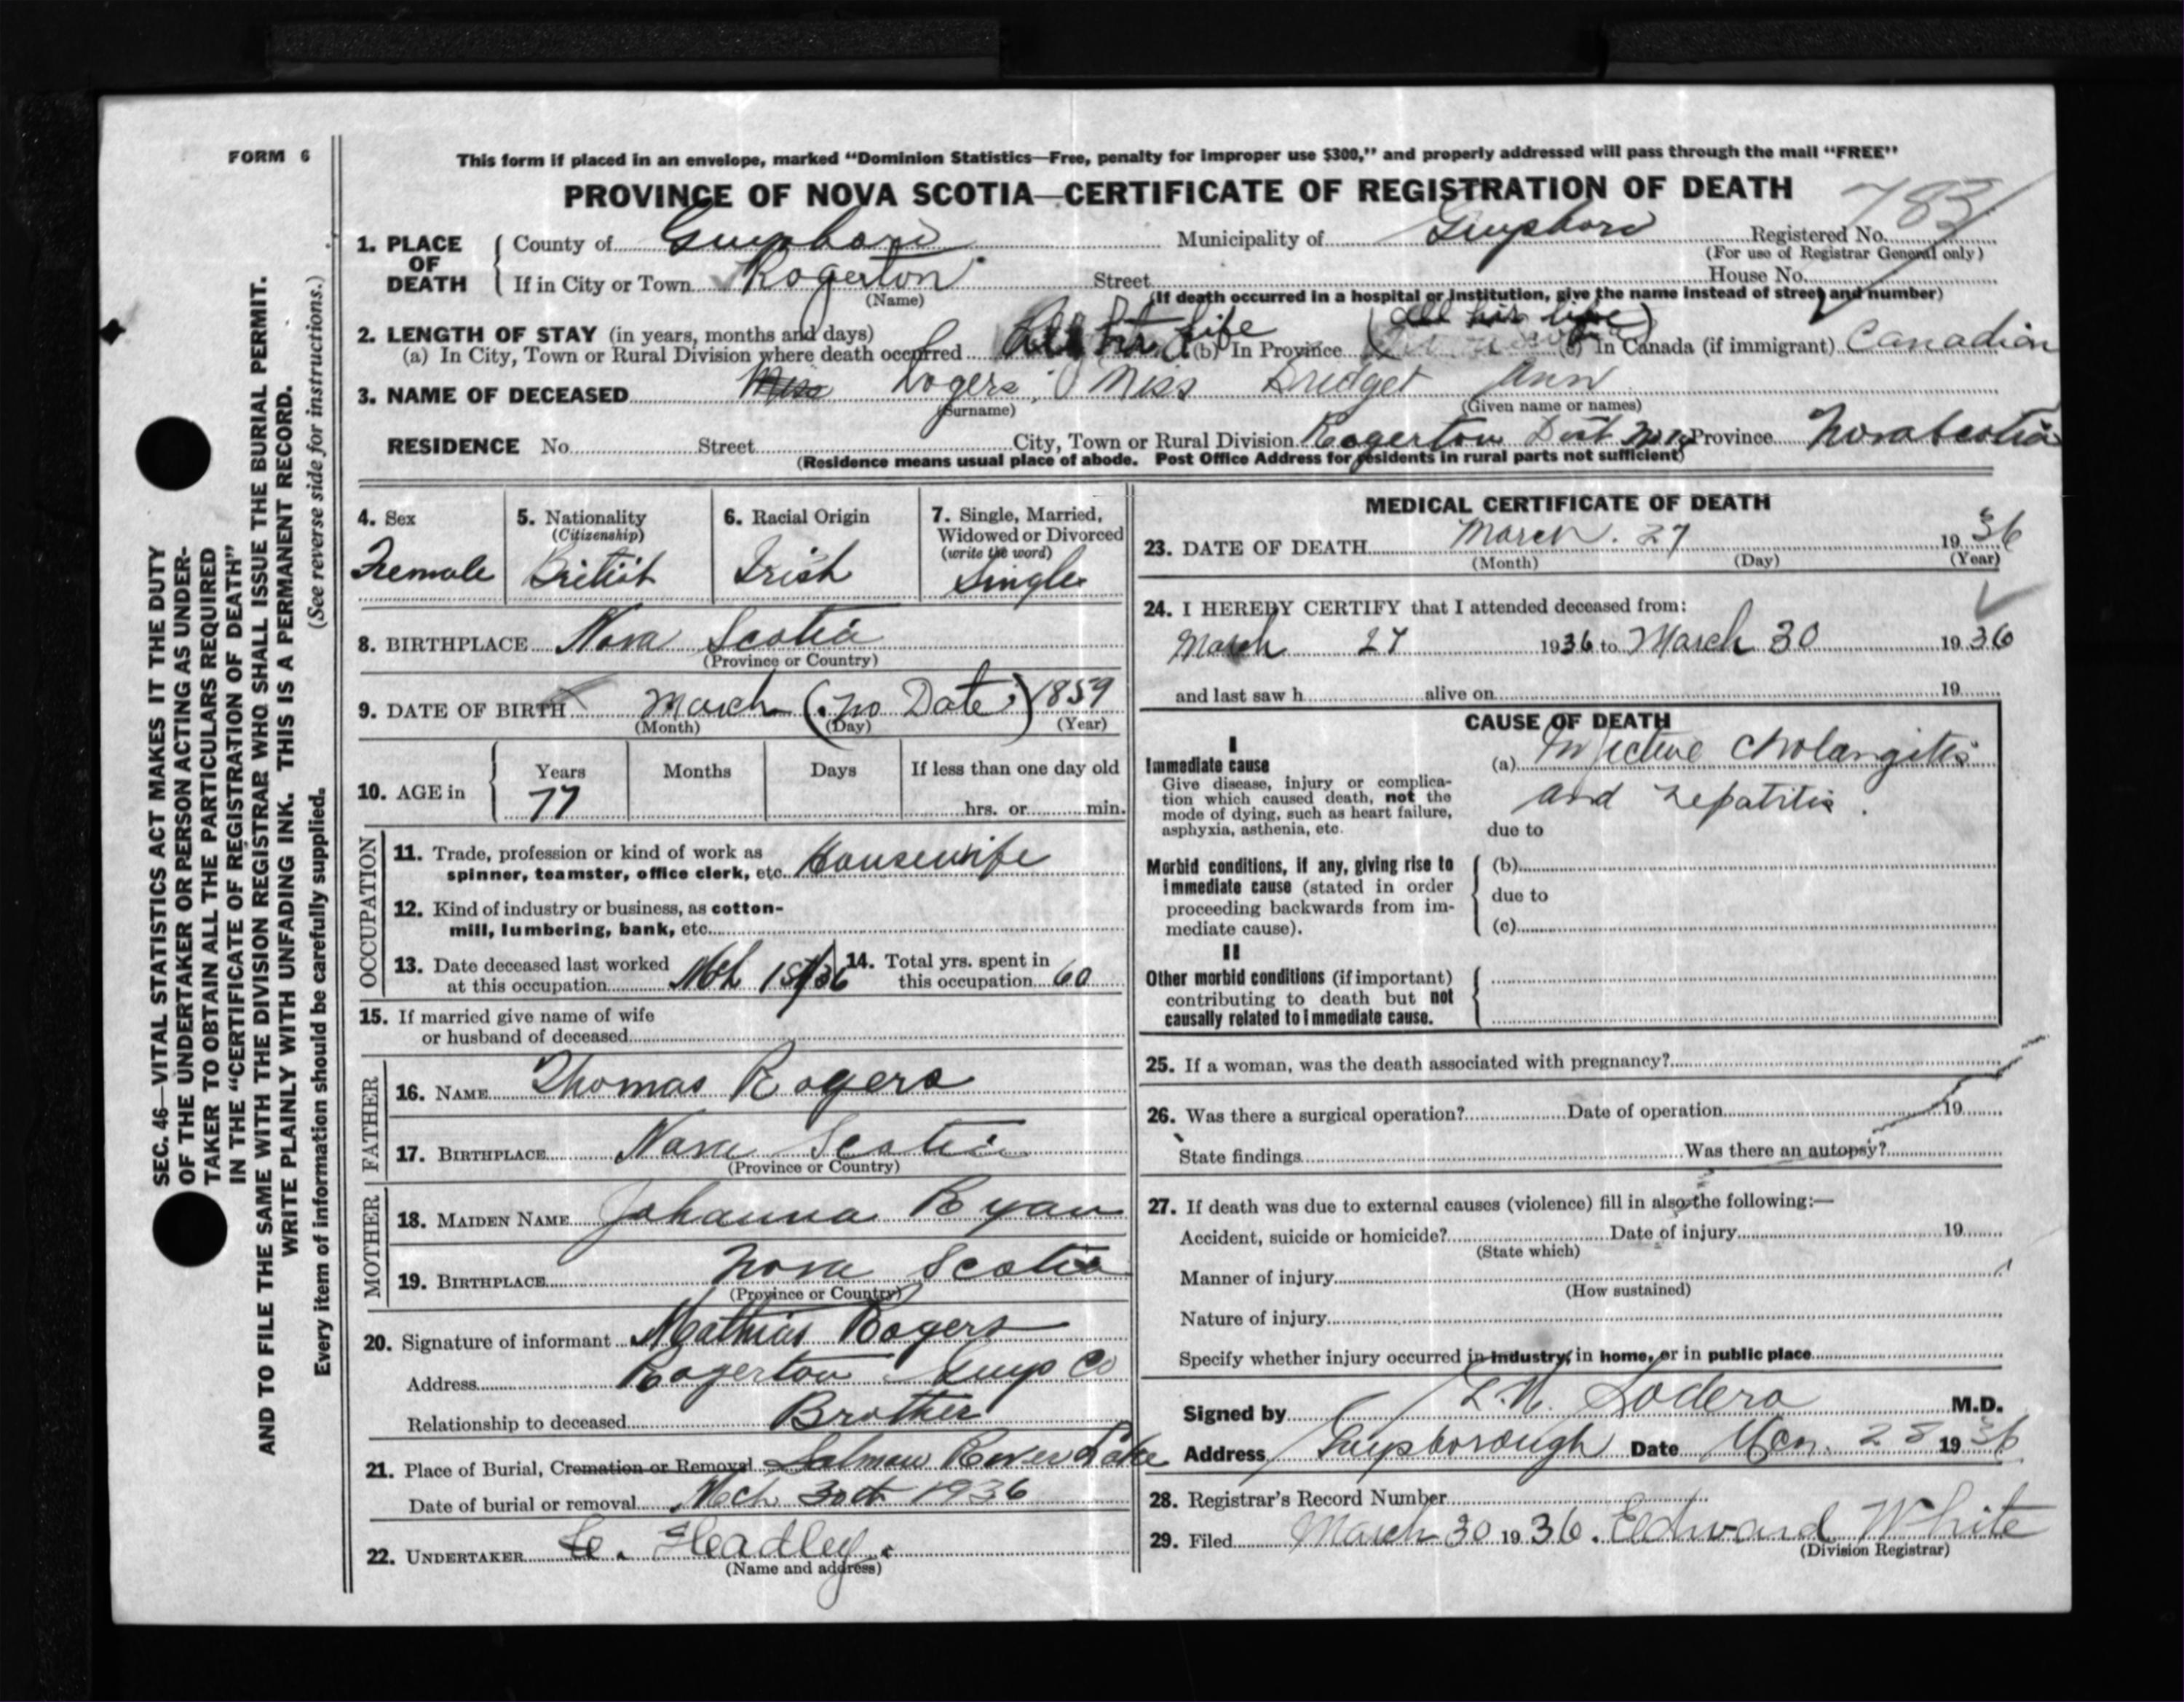 FORM 6
This form if placed in an envelope, marked “Dominion Statistics—Free, penalty for improper use $300,” and properly addressed will pass through the mail “FREE”
PROVINCE OF NOVA SCOTIA—CERTIFICATE OF REGISTRATION OF DEATH
783
1. PLACE OF DEATH { County of Guysboro Municipality of Guysboro Registered No.
(For use of Registrar General only)
If in City or Town Rogerton Street House No.
(Name)
(If death occurred in a hospital or institution, give the name instead of street and number)
2. LENGTH OF STAY (in years, months and days) (all his life)
(a) In City, Town or Rural Division where death occurred Life (b) In Province (c) In Canada (if immigrant) Canadian
3. NAME OF DECEASED Miss Rogers, Miss Bridget Ann
(Surname) (Given name or names)
RESIDENCE No. Street City, Town or Rural Division Rogerton Dist Province Nova Scotia
(Residence means usual place of abode. Post Office Address for residents in rural parts not sufficient)
4. Sex Female
5. Nationality (Citizenship) British
6. Racial Origin Irish
7. Single, Married, Widowed or Divorced (write the word) Single
8. BIRTHPLACE Nova Scotia
(Province or Country)
9. DATE OF BIRTH March (no Date) 1859
(Month) (Day) (Year)
10. AGE in { Years Months Days If less than one day old
77 hrs. or min.
OCCUPATION
11. Trade, profession or kind of work as
spinner, teamster, office clerk, etc. Housewife
12. Kind of industry or business, as cotton-
mill, lumbering, bank, etc.
13. Date deceased last worked
at this occupation Mch 1st/36
14. Total yrs. spent in
this occupation 60
15. If married give name of wife
or husband of deceased
FATHER
16. NAME Thomas Rogers
17. BIRTHPLACE Nova Scotia
(Province or Country)
MOTHER
18. MAIDEN NAME Johanna Ryan
19. BIRTHPLACE Nova Scotia
(Province or Country)
20. Signature of informant Mathias Rogers
Address Rogerton Guys Co
Relationship to deceased Brother
21. Place of Burial, Cremation or Removal Salmon River Lake
Date of burial or removal Mch 30th 1936
22. UNDERTAKER C. Headley
(Name and address)
MEDICAL CERTIFICATE OF DEATH
23. DATE OF DEATH March. 27 1936
(Month) (Day) (Year)
24. I HEREBY CERTIFY that I attended deceased from:
March 27 1936 to March 30 1936
and last saw h alive on 19
CAUSE OF DEATH
I
Immediate cause
Give disease, injury or complica-
tion which caused death, not the
mode of dying, such as heart failure,
asphyxia, asthenia, etc.
(a) Infective Cholangitis
and hepatitis.
due to
Morbid conditions, if any, giving rise to
immediate cause (stated in order
proceeding backwards from im-
mediate cause).
(b)
due to
(c)
II
Other morbid conditions (if important)
contributing to death but not
causally related to immediate cause.
25. If a woman, was the death associated with pregnancy?
26. Was there a surgical operation? Date of operation 19
State findings Was there an autopsy?
27. If death was due to external causes (violence) fill in also the following:—
Accident, suicide or homicide? Date of injury 19
(State which)
Manner of injury
(How sustained)
Nature of injury
Specify whether injury occurred in industry, in home, or in public place
Signed by M.D.
Address Guysborough Date Mar. 28 1936
28. Registrar's Record Number
29. Filed March 30 1936. Edward White
(Division Registrar)
SEC. 46—VITAL STATISTICS ACT MAKES IT THE DUTY
OF THE UNDERTAKER OR PERSON ACTING AS UNDER-
TAKER TO OBTAIN ALL THE PARTICULARS REQUIRED
IN THE “CERTIFICATE OF REGISTRATION OF DEATH”
AND TO FILE THE SAME WITH THE DIVISION REGISTRAR WHO SHALL ISSUE THE BURIAL PERMIT.
WRITE PLAINLY WITH UNFADING INK. THIS IS A PERMANENT RECORD.
Every item of information should be carefully supplied. (See reverse side for instructions.)